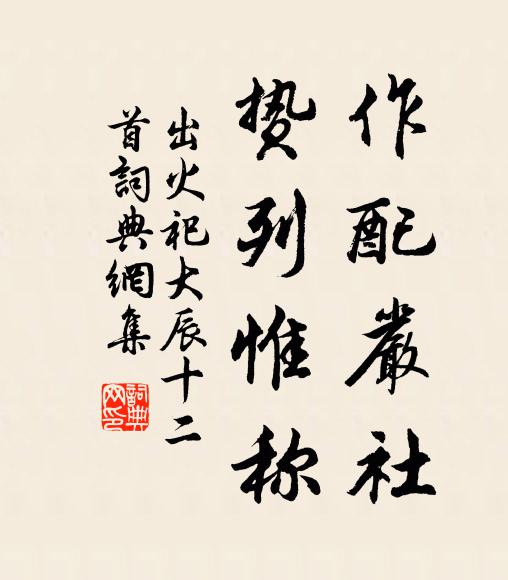 作配嚴社
贄列惟称
出火祀大辰十二
首詞典網集
詞典
网印